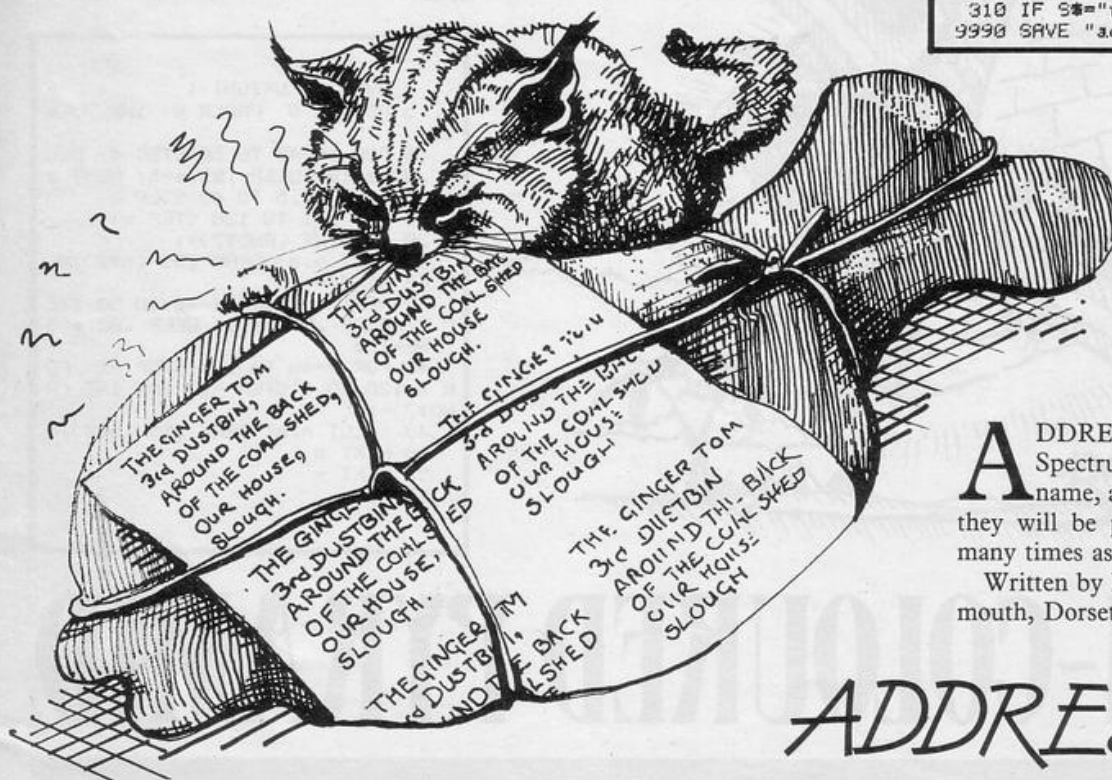 310 IF S$="
9990 SAVE "a
THE GIN
3rd DUSTBIN
AROUND THE BAC
OF THE COAL SHED
OUR HOUSE
SLOUGH.
THE GINGER TOM
3rd DUSTBIN,
AROUND THE BACK
OF THE COAL SHED,
OUR HOUSE,
SLOUGH.
THE GINGER TOM
3rd DUST
AROUND THE BAC
OF THE COAL SHED
OUR HOUSE
SLOUGH
THE GINGER TOM
3rd DUSTBIN
AROUND THE BACK
OF THE COAL SHED
OUR HOUSE
SLOUGH
THE GINGE
3rd DUSTBIN
AROUND THE BACK
OF THE COAL SHED
OUR HOUSE,
SLOUGH.
THE GINGER TM
rd DUSTBI,
UND E BACK
LSHED
ADDRE
Spectru
name, a
they will be
many times as
Written by
mouth, Dorse
ADDRE